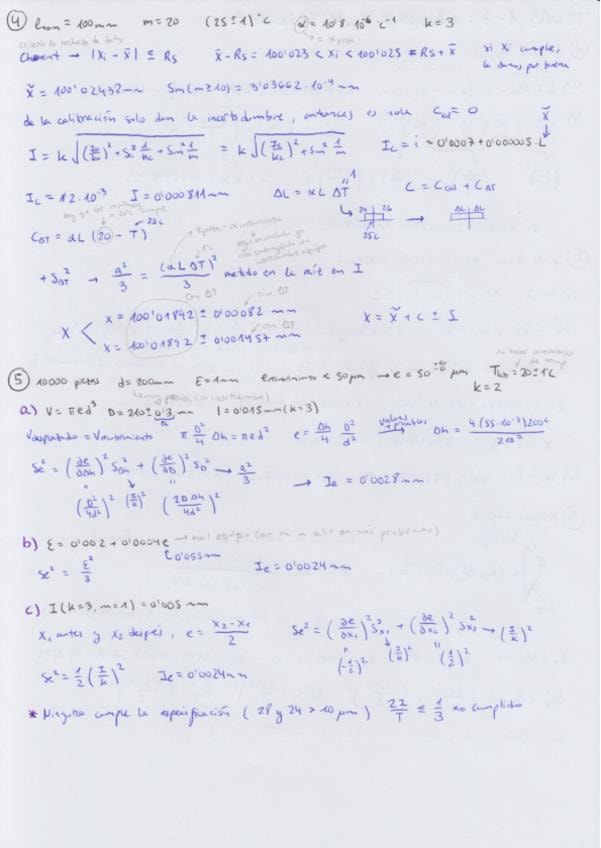 ④ lnom = 100mm m = 20 (25 ± 1)°C α = 10'8·10⁻⁶ °C⁻¹ k = 3
criterio de rechazo de datos
Chauvenet → |Xi - x̄| ≤ Rs x̄ - Rs = 100'023 < Xi < 100'025 = Rs + x̄ si Xi cumple,
lo damos por bueno
x̄ = 100'02432mm Sm(m≥10) = 3'03662·10⁻⁴ mm
de la calibración solo dan la incertidumbre, entonces es vale Ccal = 0
I = k √((Ic/kc)² + Sc² 1/nc + Sm² 1/m) = k √((Ic/kc)² + Sm² 1/m) Ic = i = 0'0007 + 0'000005·L
x̄
Ic = 1'2·10⁻³ I = 0'000811mm ΔL = αL ΔT C = Ccal + CΔT
CΔT = αL(20 - T)
25ºC
+ SΔT² → a²/3 = (αL ΔT)²/3 metido en la raíz en I
con ΔT sin ΔT
x = 100'01892 ± 0'00082 mm
X con ΔT X = x̄ + c ± I
x = 100'01892 ± 0'001457 mm
⑤ 10000 piezas d = 200mm E = 1mm recubrimiento < 50μm → e = 50 μm Tlab = 20 ± 1ºC
k = 2
a) V = πed² D = 210 ± 0'3 mm I = 0'015mm (k = 3)
Vevaporado = Vrecubrimiento π D²/4 Δh = πed² e = Δh/4 D²/d² Δh = 4(55·10⁻³)200²/210²
Se² = (∂e/∂Δh)² SΔh² + (∂e/∂D)² SD² → a²/3 → Ie = 0'0028mm
(D²/4d²)² (I/k)² (2DΔh/4d²)²
b) ε = 0'002 + 0'0004e
0'055mm
Se² = ε²/3 Ie = 0'0024mm
c) I (k=3, m=1) = 0'005 mm
X₁ antes y X₂ después, e = (X₂ - X₁)/2 Se² = (∂e/∂x₁)² Sx₁² + (∂e/∂x₂)² Sx₂² → (I/k)²
(-1/2)² (I/k)² (1/2)²
Se² = 1/2 (I/k)² Ie = 0'0024mm
* Ninguno cumple la especificación (28 y 24 > 10 μm) 2I/T ≤ 1/3 no cumplido